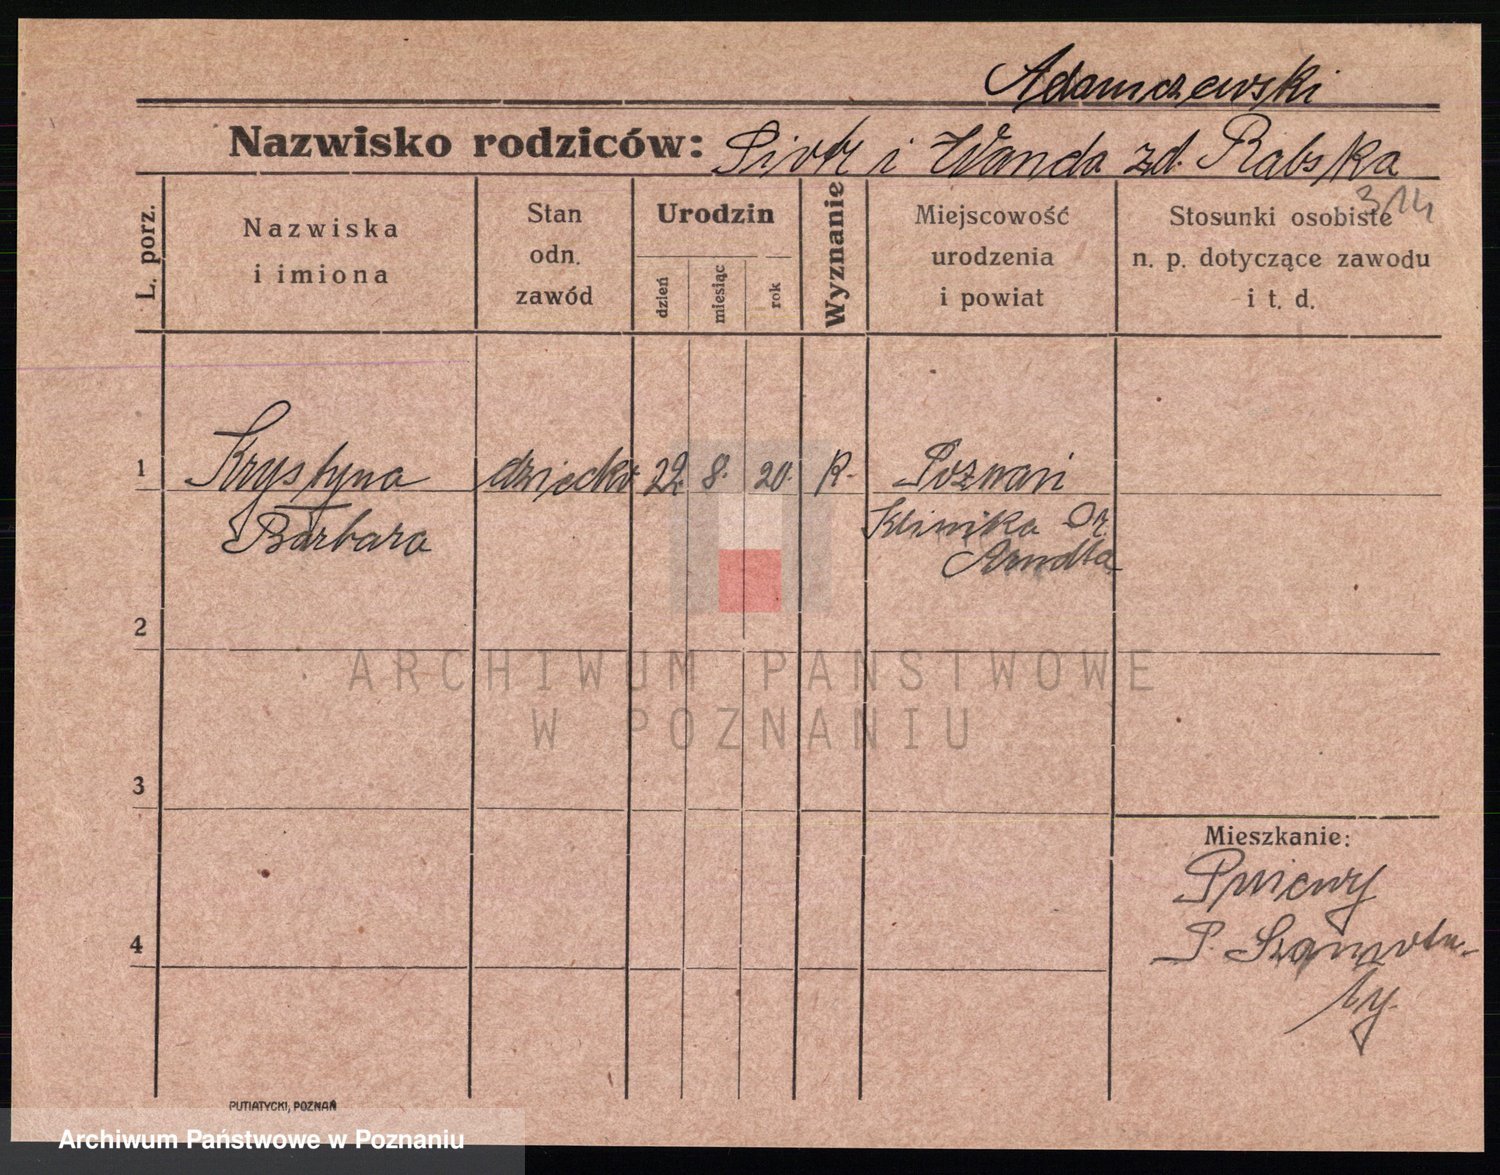 Adamczewski
Nazwisko rodziców: Piotr i Wanda zd. Rabska
314
L. porz.
Nazwiska
i imiona
Stan
odn.
zawód
Urodzin
dzień
miesiąc
rok
Wyznanie
Miejscowość
urodzenia
i powiat
Stosunki osobiste
n. p. dotyczące zawodu
i t. d.
1 Krystyna dziecko 22. 8. 20. R. Poznań
Barbara Klinika Dr.
Arndta
2
ARCHIWUM PAŃSTWOWE
W POZNANIU
3
Mieszkanie:
Pniewy
4 P. Szamotu-
ły.
PUTIATYCKI, POZNAŃ
Archiwum Państwowe w Poznaniu